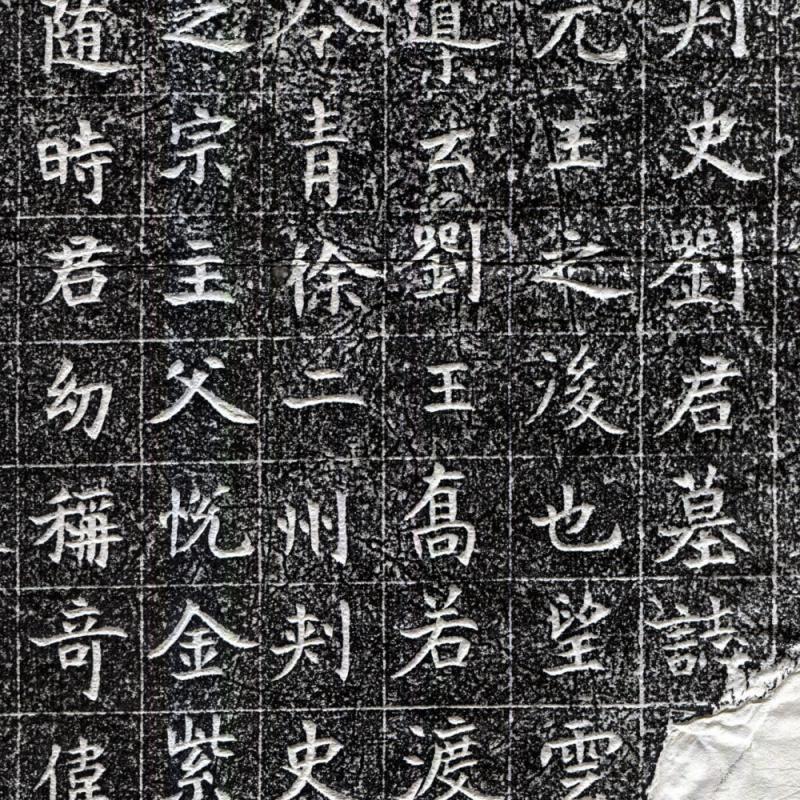 刾史劉君墓誌
元王之後也望雲
導玄劉王髙若渡
令青徐二州刾史
之宗主父恱金紫
随時君幼稱竒偉